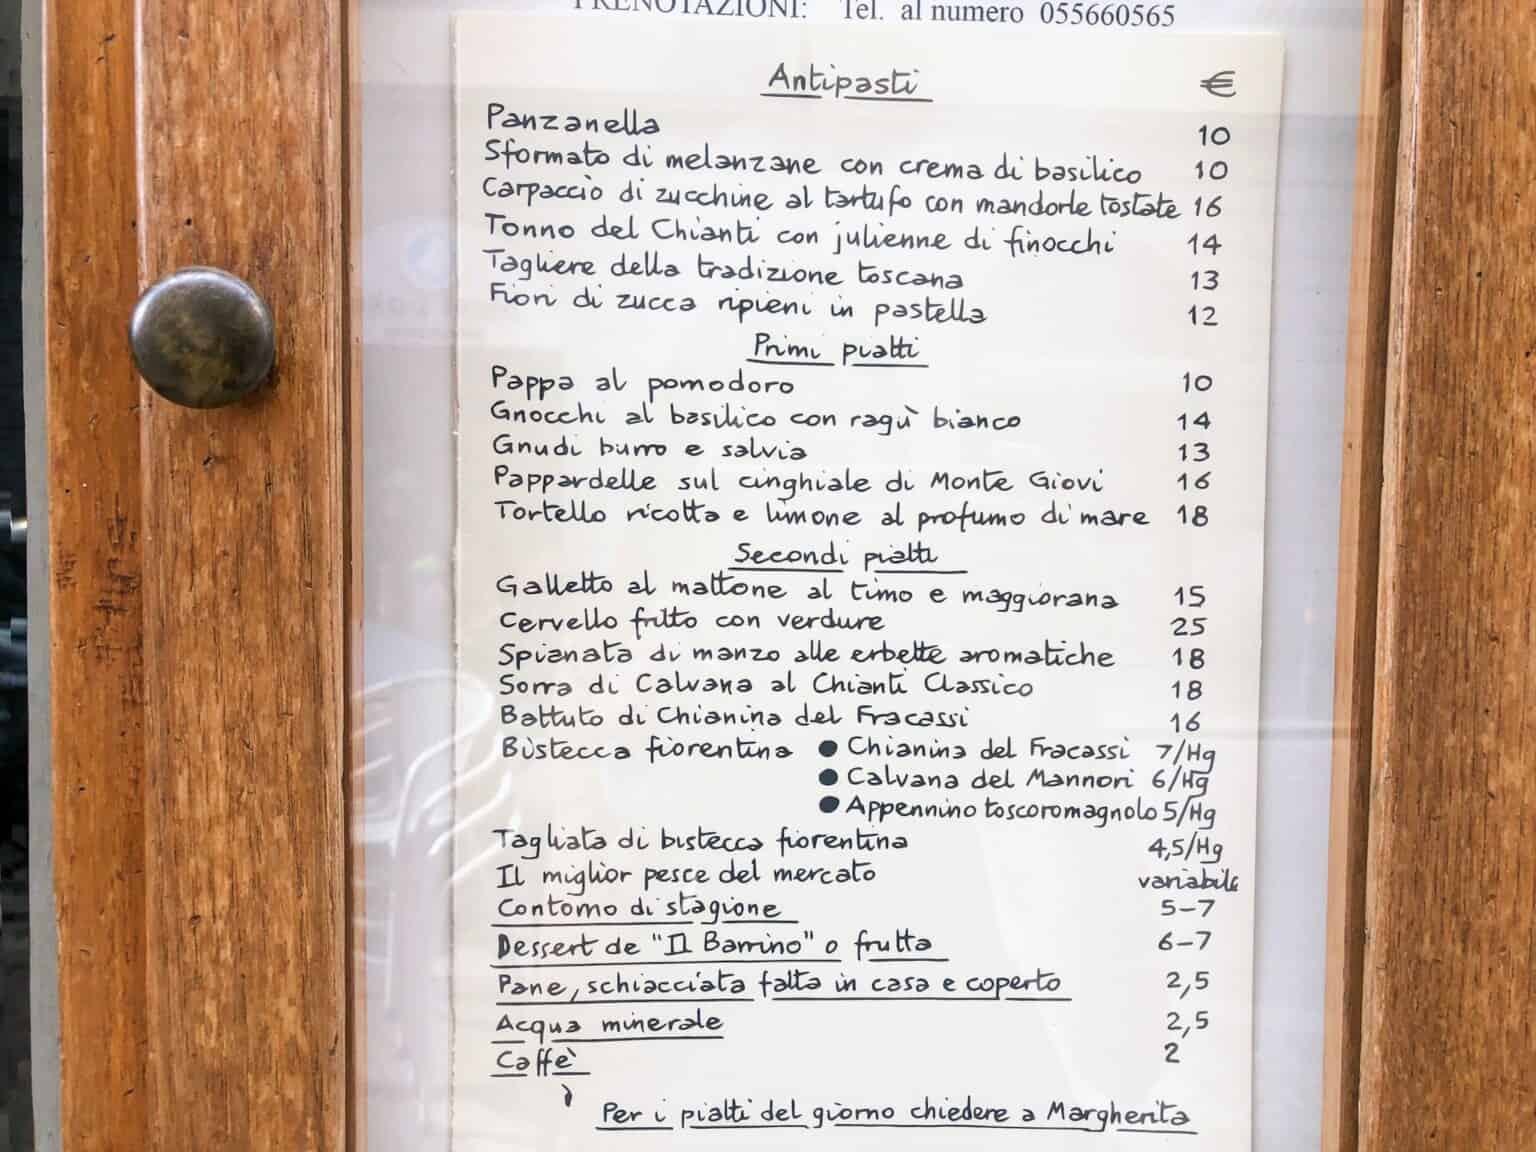 PRENOTAZIONI: Tel. al numero 055660565
Antipasti €
Panzanella 10
Sformato di melanzane con crema di basilico 10
Carpaccio di zucchine al tartufo con mandorle tostate 16
Tonno del Chianti con julienne di finocchi 14
Tagliere della tradizione toscana 13
Fiori di zucca ripieni in pastella 12
Primi piatti
Pappa al pomodoro 10
Gnocchi al basilico con ragù bianco 14
Gnudi burro e salvia 13
Pappardelle sul cinghiale di Monte Giovi 16
Tortello ricotta e limone al profumo di mare 18
Secondi piatti
Galletto al mattone al timo e maggiorana 15
Cervello fritto con verdure 25
Spianata di manzo alle erbette aromatiche 18
Sorra di Calvana al Chianti Classico 18
Battuto di Chianina del Fracassi 16
Bistecca fiorentina ● Chianina del Fracassi 7/Hg
● Calvana del Mannori 6/Hg
● Appennino toscoromagnolo 5/Hg
Tagliata di bistecca fiorentina 4,5/Hg
Il miglior pesce del mercato variabile
Contorno di stagione 5-7
Dessert de "Il Barrino" o frutta 6-7
Pane, schiacciata fatta in casa e coperto 2,5
Acqua minerale 2,5
Caffè 2
Per i piatti del giorno chiedere a Margherita